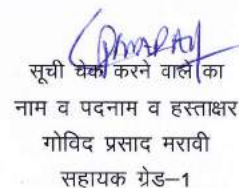 सूची चेक करने वाले का
नाम व पदनाम व हस्ताक्षर
गोविद प्रसाद मरावी
सहायक ग्रेड–1